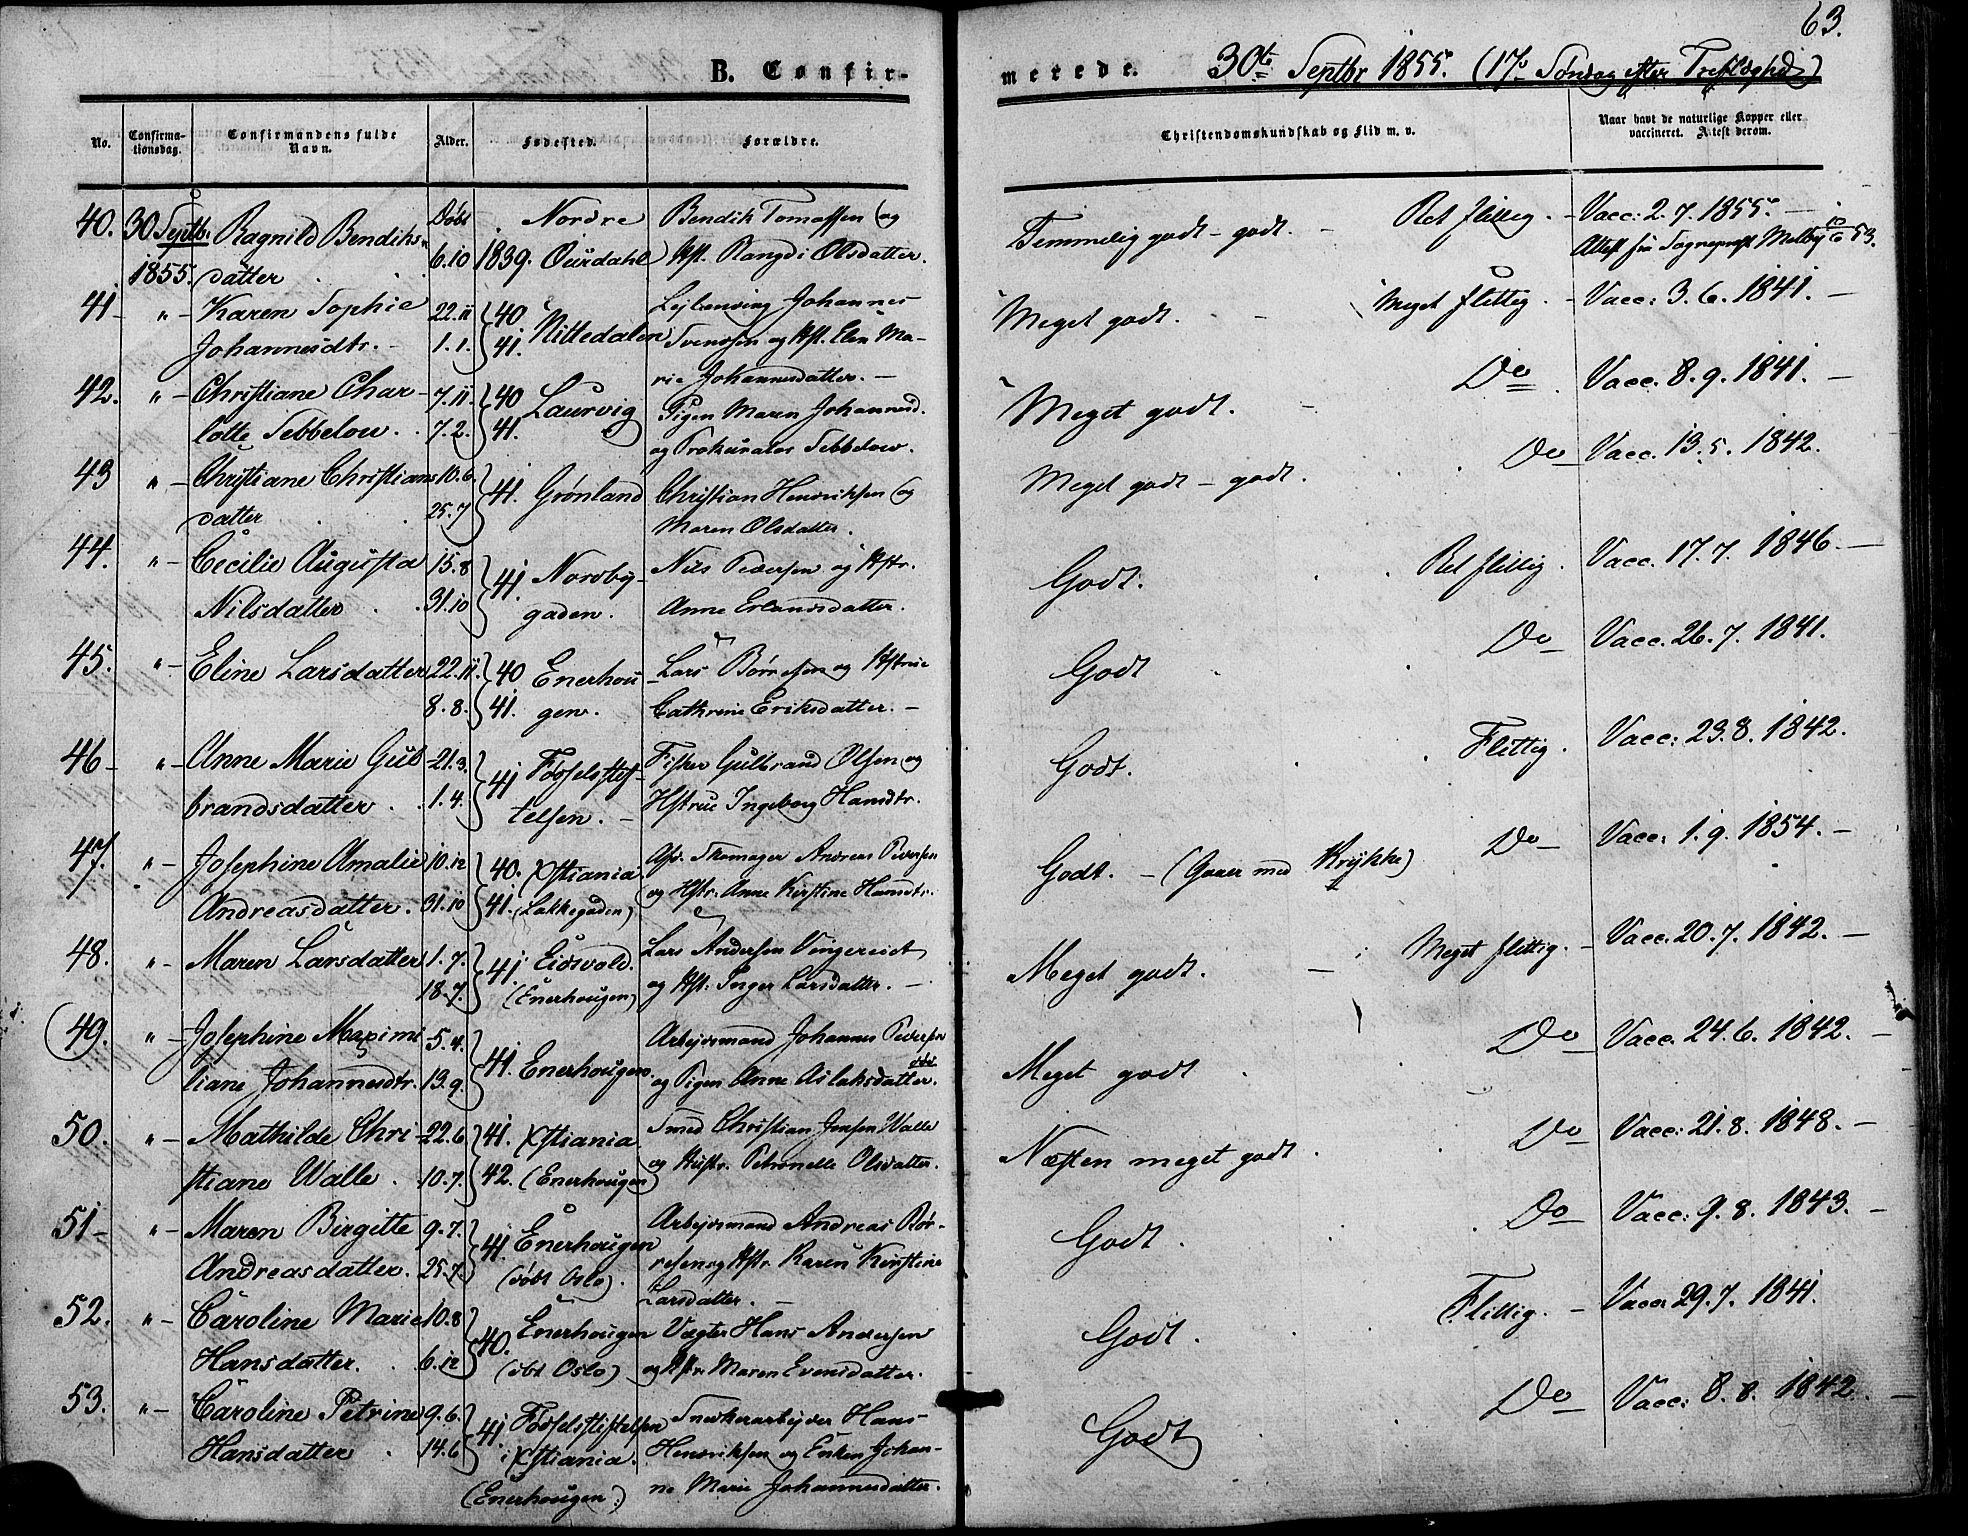 63.
B. Confir-
merede.
30te Septbr 1855. (17de Søndag efter Trefoldighed)
No.
Confirma-
tionsdag.
Confirmandens fulde
Navn.
Alder.
Fødested.
Forældre.
Christendomskundskab og Flid m. v.
Naar havt de naturlige Kopper eller
vaccineret. Attest derom.
40. 30 Septbr. Ragnild Bendiks- Døbt Nordre Bendik Tomassen og Temmelig godt - godt. Ret flittig. Vacc: 2. 7. 1855.
1855. datter 6.10 1839. Ourdahl Hst. Rangdi Olsdatter. Attest fra Sognepræst Melby 10/6 53.
41 " Karen Sophie 22.11 40 Nittedalen Johannes Meget godt. Meget flittig. Vacc: 3. 6. 1841.
Johannesdtr. 1.1. 41. Svendsen og Hst. Elen Ma-
rie Johannesdatter.
42. " Christiane Char- 7.11. 40 Laurvig Pigen Maren Johannesd. Meget godt. Do Vacc. 8. 9. 1841.
lotte Sebbelow. 7.2. 41. og Prokurator Sebbelow.
43 " Christiane Christians 10.6. 41. Grønland Christian Henriksen og Meget godt - godt. Do Vacc. 13. 5. 1842.
datter 25.7 Maren Olsdatter.
44. " Cecilie Augusta 15.8 41. Nordby- Nils Pedersen og Hstr. Godt. Ret flittig. Vacc. 17. 7. 1846.
Nilsdatter 31.10 gaden. Anne Erlandsdatter.
45. " Eline Larsdatter 22.11. 40 Enerhou Lars Børresen og Hstrue Godt Do Vacc. 26. 7. 1841.
8.8. 41. gen. Cathrine Eriksdatter.
46 " Anne Marie Gul 21.3. 41 Fødselsstif- Fisker Gulbrand Olsen og Godt. Flittig. Vacc: 23. 8. 1842.
brandsdatter 1.4. telsen. Hstrue Ingeborg Hansdtr.
47. " Josephine Amalie 10.12 40. Xstiania Andreas Pedersen Godt. - (Gaaer med Krykke) Do Vacc: 1. 9. 1854.
Andreasdatter. 31.10 41. (Lakkegaden) og Hstr. Anne Kirstine Hansdtr.
48. " Maren Larsdatter 1.7. 41. Eidsvold. Lars Andersen Vingereidt Meget godt. Meget flittig. Vacc. 20. 7. 1842.
18.7. (Enerhougen) og Hst. Inger Larsdatter.
49. " Josephine Maximi 5.4. 41. Enerhougen. Arbejdsmand Johannes Pedersen Meget godt Do Vacc. 24. 6. 1842.
liane Johannesdtr. 19.9. og Pigen Anne Aslaksdatter.
50. " Mathilde Chri 22.6 41. Xstiania Smed Christian Jensen Walle Næsten meget godt Do Vacc: 21. 8. 1848.
stiane Walle 10.7. 42. (Enerhougen) og Hustr. Petronelle Olsdatter.
51 " Maren Birgitte 9.7. 41. Enerhougen Arbejdsmand Andreas Bør- Godt. Do Vacc: 9. 8. 1843.
Andreasdatter. 25.7. (døbt Oslo). resen og Hstr. Karen Kirstine
Larsdatter.
52. " Caroline Marie 10.8 40. Enerhougen Vægter Hans Andersen Godt. Flittig. Vacc 29. 7. 1841.
Hansdatter. 6.12 (dbt Oslo) og Hstr. Maren Evensdatter.
53. " Caroline Petrine 9.6. 41. Fødselsstiftelsen Snekkerarbejder Hans Godt Do Vacc: 8. 8. 1842
Hansdatter 14.6 i Xstiania. Henriksen og Enken Johan-
(Enerhougen.) ne Marie Johannesdatter.